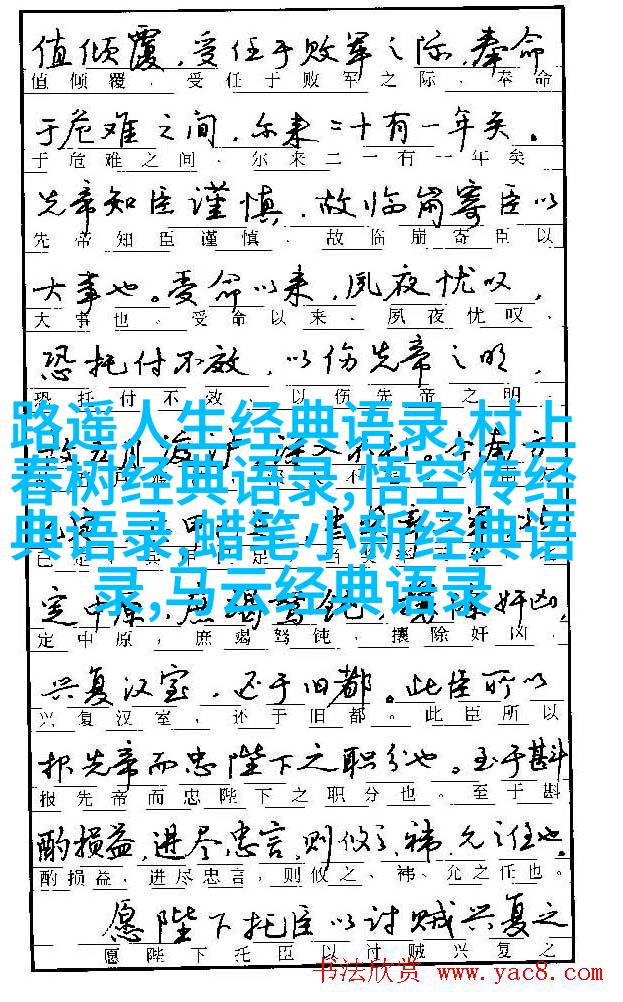 值倾覆，受任于败军之际，奉命
值倾覆，受任于败军之际，奉命
于危难之间，尔来二十有一年矣。
于危难之间，尔来二一有一年矣
先帝知臣谨慎，故临崩寄臣以
先帝知臣谨慎，故临崩寄臣以
大事也。受命以来，夙夜忧叹，
大事也。受命以来，夙夜忧叹，
恐托付不效，以伤先帝之明，
恐托付不效，以伤先帝之明，
路遥人生经典语录,村上
春树经典语录,悟空传经
典语录,蜡笔小新经典语
录,马云经典语录
定中原，庶竭驽钝，攘除奸凶，
定中原，庶竭驽钝，攘除奸凶，
兴复汉室，还于旧都。此臣所以
兴复汉室，还于旧都。此臣所以
报先帝而忠陛下之职分也。至于斟
报先帝而忠陛下之职分也。至于斟
酌损益，进尽忠言，则攸之、祎、允之任也。
酌损益，进尽忠言，则攸之、祎、允之任也。
愿陛下托臣以讨贼兴复之
愿陛下托臣以讨贼兴复之
书法欣赏 www.yac8.com